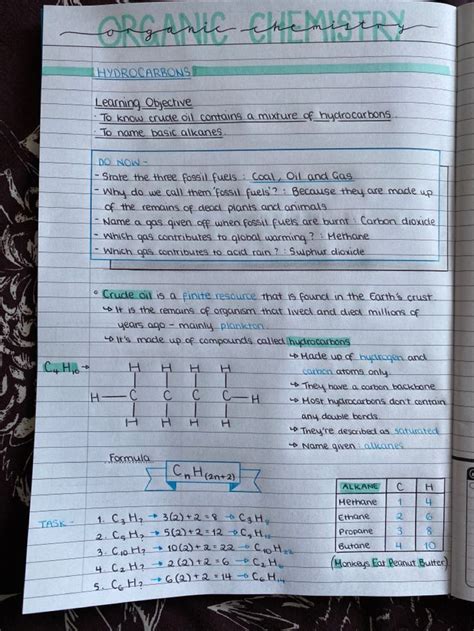 ORGANIC CHEMISTRY
organic chemistry
HYDROCARBONS
Learning Objective
· To know crude oil contains a mixture of hydrocarbons.
· To name basic alkanes.
DO NOW -
- State the three fossil fuels : Coal, Oil and Gas
- Why do we call them 'fossil fuels'? : Because they are made up
of the remains of dead plants and animals
- Name a gas given off when fossil fuels are burnt : Carbon dioxide
- Which gas contributes to global warming? : Methane
- Which gas contributes to acid rain? : Sulphur dioxide
Crude oil is a finite resource that is found in the Earth's crust.
↳ It is the remains of organism that lived and died millions of
years ago - mainly plankton.
↳ It's made up of compounds called hydrocarbons
↳ Made up of hydrogen and
carbon atoms only.
↳ They have a carbon backbone
↳ Most hydrocarbons don't contain
any double bonds.
↳ They're described as saturated
↳ Name given : alkanes
C₄ H₁₀ →
H H H H
H C C C C H
H H H H
Formula
CₙH(2n+2)
ALKANE C H
Methane 1 4
Ethane 2 6
Propane 3 8
Butane 4 10
(Monkeys Eat Peanut Butter)
TASK -
1. C₃H? → 3(2)+2 = 8 → C₃H₈
2. C₅H? → 5(2)+2 = 12 →
3. C₁₀H? → 10(2)+2 = 22 → C₁₀H₂₂
4. C₂H? → 2(2)+2 = 6 → C₂H₆
5. C₆H? → 6(2)+2 = 14 → C₆H₁₄